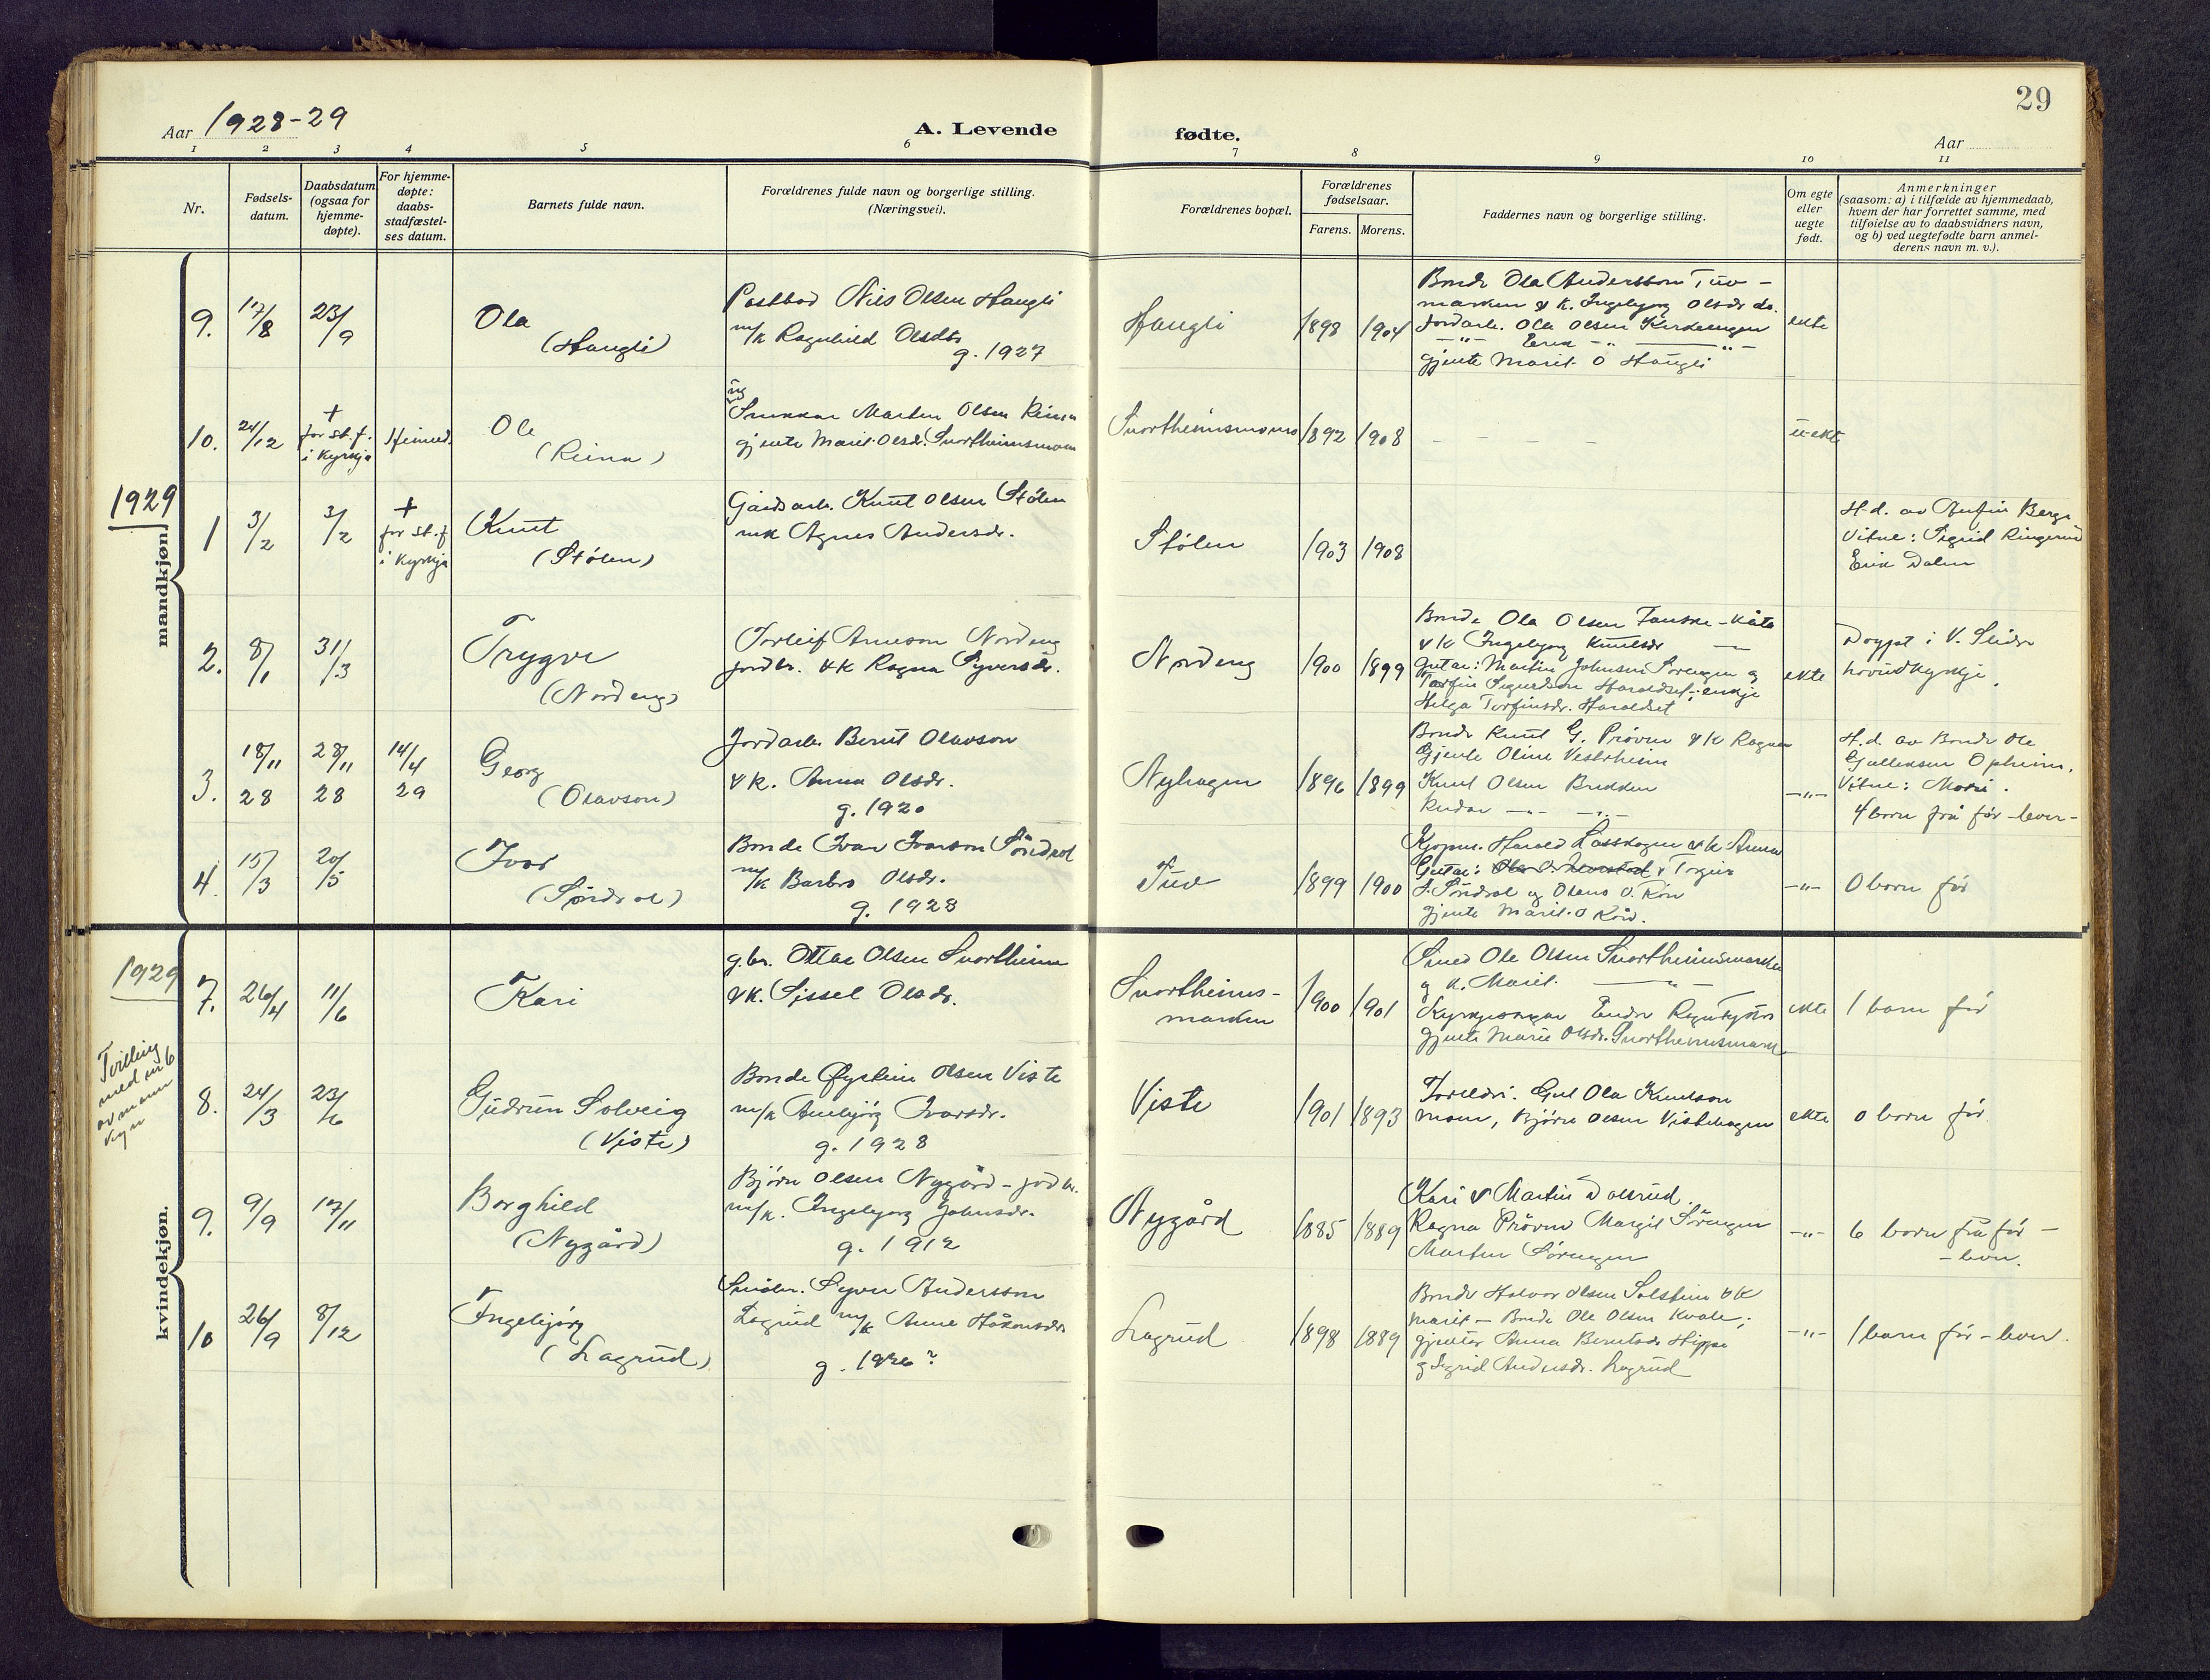 29
Aar 1928-29
A. Levende
fødte.
Aar
1 2 3 4 5 6 7 8 9 10 11
Nr.
Fødsels-
datum.
Daabsdatum
(ogsaa for
hjemme-
døpte).
For hjemme-
døpte:
daabs-
stadfæstel-
ses datum.
Barnets fulde navn.
Forældrenes fulde navn og borgerlige stilling.
(Næringsvei).
Forældrenes bopæl.
Forældrenes
fødselsaar.
Farens. Morens.
Faddernes navn og borgerlige stilling.
Om egte
eller
uegte
født.
Anmerkninger
(saasom: a) i tilfælde av hjemmedaab,
hvem der har forrettet samme, med
tilføielse av to daabsvidners navn,
og b) ved uegtefødte barn anmel-
derens navn m. v.).
mandkjøn.
9. 17/8 23/9
Ola
(Haugli)
Postbod Nils Olsen Haugli
m/k Ragnhild Olsdtr
g. 1927
Haugli
1898 1904
Bonde Ola Andersson Tuv-
marken & k. Ingebjørg Olsdr do.
Jordarb. Ola Olsen
gjente Marit O Haugli
ekte
10. 24/12
+
for st. f.
i kyrkja
Heimed.
Ole
(Reina)
ug
Snekkar Marten Olsen Reina
gjente Marit Olsdr. Snortheimsmoen
1892 1908
- - - -
u-ekte
1929
1 3/2 3/2
+
for st. f
i kyrkja
Knut
(Stølen)
Gardsarb. Knut Olsen Stølen
m/k Agnes Andersdr.
Stølen
1903 1908
H-d. av Anfin Berge
Vitne: Sigrid Ringerud
Erik Dalen
2. 8/1 31/3
Trygve
(Nordeng)
Torleif Arneson Nordeng
jordbr. & K Ragna Syversdr.
Nordeng
1900 1899
Bonde Ola Olsen
& k Ingebjørg Knutsdr
Gutar: Martin Johnsen Sørengen og
Torfin Sigurdson Haraldset, enkje
Helga Torfinsdr. Haraldset
ekte
Døypt i V. Slidre
hovudkyrkje.
3.
18/11 28/11 14/4
28 28 29
Georg
(Olavson)
Jordarb. Bernt Olavson
& k. Anna Olsdr.
g. 1920
Nyhagen
1896 1899
Bonde Knut G. Prøven & k Ragna
Gjente Oline Vestrheim
Knut Olsen Brekken
-"-
H.d. av Bonde Ole
Gulleksen Opheim.
Vitne: Mori.
4 born frå før - lever -
4. 15/3 20/5
Ivar
(Søndrol)
Bonde Ivar Ivarson Søndrol
m/k Barbro Olsdr.
g. 1928
Tuv
1899 1900
Kjøpm. Harald & k Anna
Gutar: & Torgeir
I. Søndrol og Olaus O. Røn
gjente Marit O Røn.
-"-
0 born før
kvindekjøn.
1929
7. 26/4 11/6
Kari
g.br. Ottar Olsen Snortheim
& k. Sissel Olsdr.
Snortheims-
marken
1900 1901
Smed Ole Olsen Snortheimsmarken
og k. Marit -"-
Kyrkjesongar Endre
gjente Marie Olsdr. Snortheimsmark
ekte
1 barn før
Tvilling
med nr 6
av mann
kyn
8. 24/3 23/6
Gudrun Solveig
(Viste)
Bonde Øystein Olsen Viste
m/k Anebjørg Ivarsdr.
g. 1928
Viste
1901 1893
Foreldri. Gut Ola Knutson
Moen, Bjørn Olsen Vistehagen
ekte
0 born før
9. 9/9 17/11
Borghild
(Nygård)
Bjørn Olsen Nygård - jordbr.
m/k. Ingebjørg Johnsdr.
g. 1912
Nygård
1885 1889
Kari & Martin Dalsrud.
Ragna Prøven Margit Sørengen
Marten Sørengen
-"-
6 born frå før -
- lever.
10 26/9 8/12
Ingebjørg
(Lagrud)
Småbr. Syver Andersson
Lagrud m/k Anne Håkonsdr
g. 1926?
Lagrud
1898 1889
Bonde Halvor Olsen Solstein & k
Marit - Bonde Ole Olsen Kvale;
gjenter Anna Berntsdr Hippe
og Sigrid Andersdr. Lagrud
-"-
1 barn før - lever.